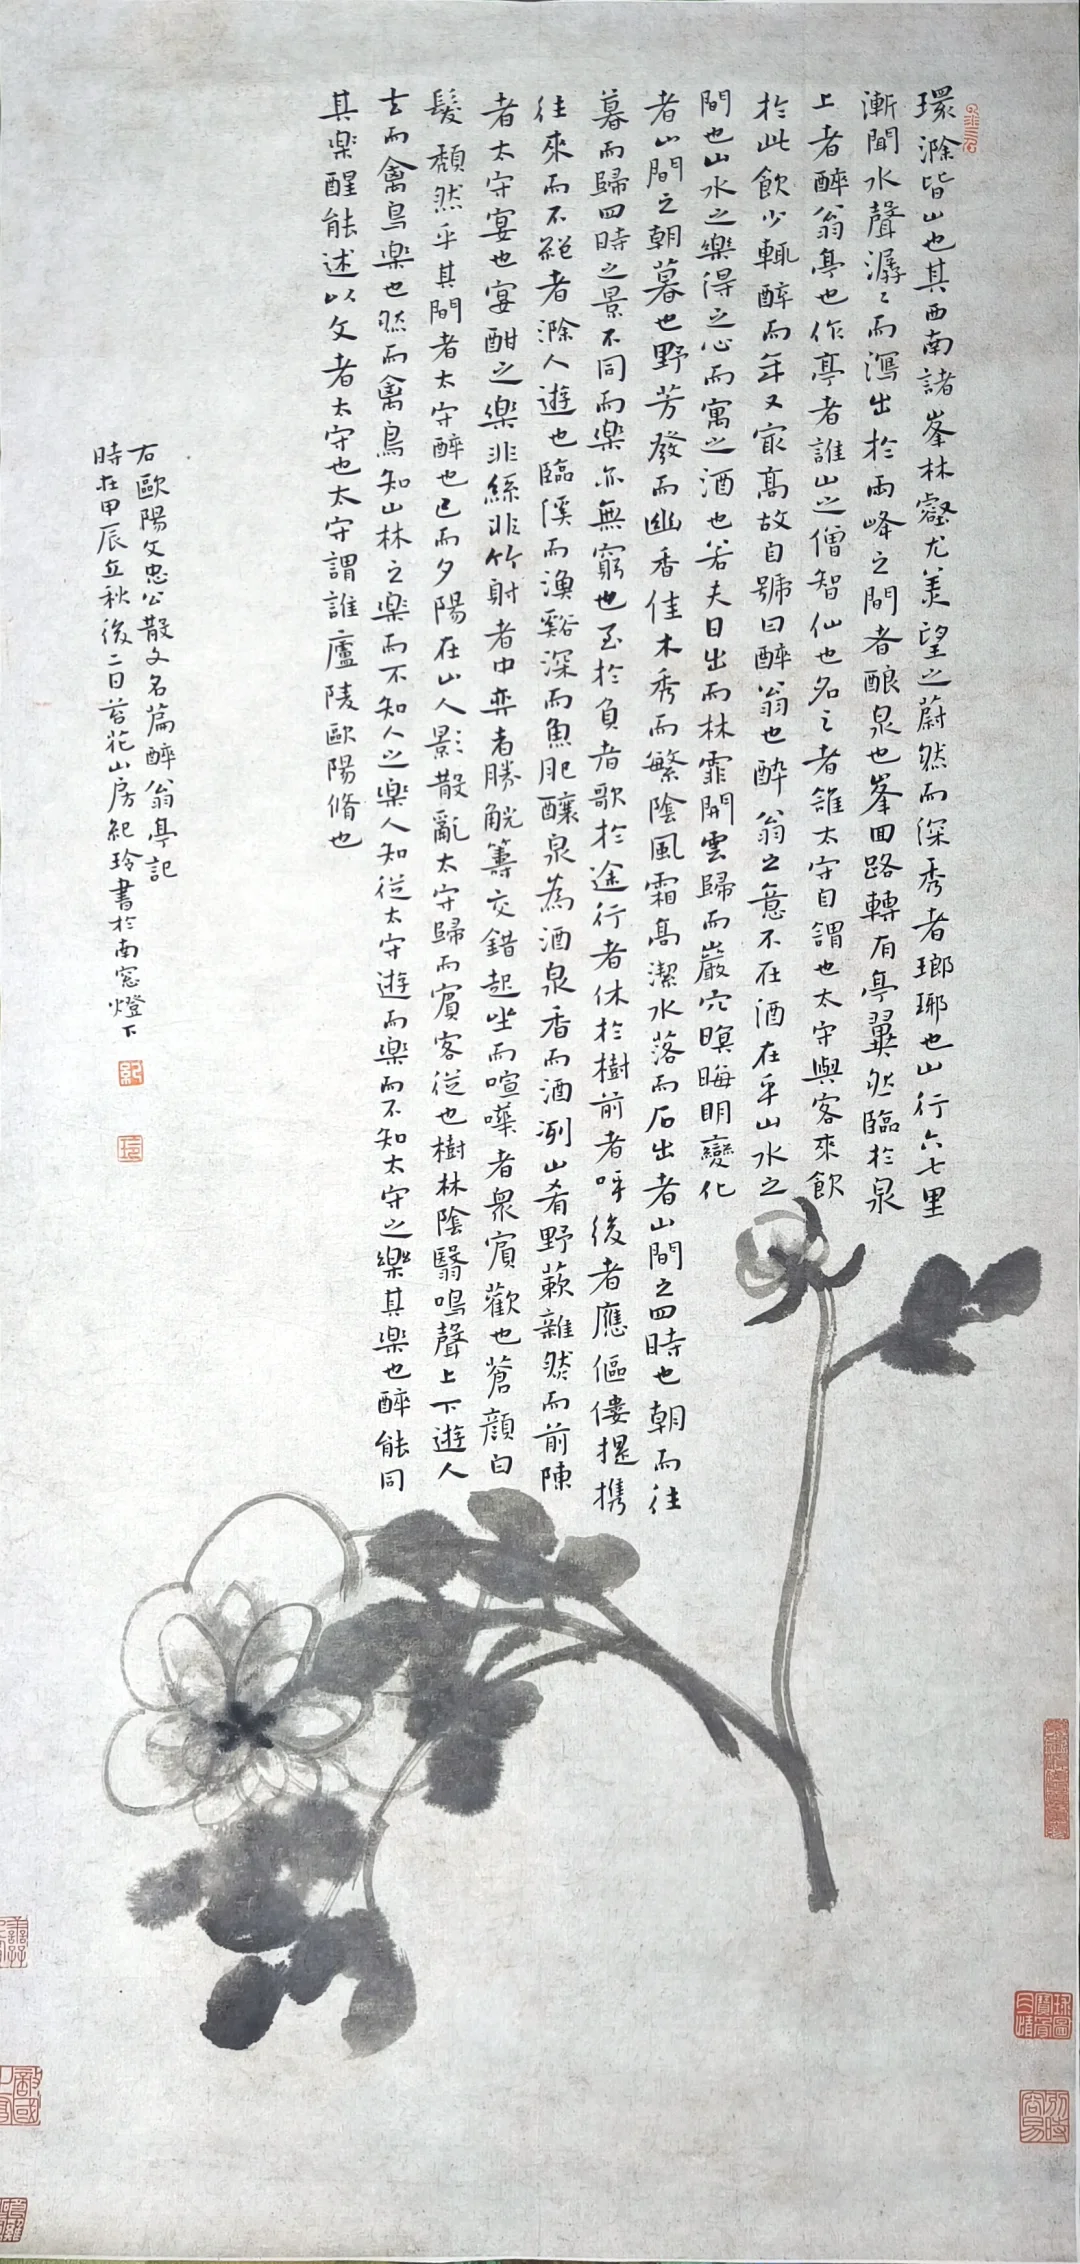 環滁皆山也其西南諸峯林壑尤美望之蔚然而深秀者瑯琊也山行六七里
漸聞水聲潺〻而瀉出於兩峰之間者釀泉也峯回路轉有亭翼然臨於泉
上者醉翁亭也作亭者誰山之僧智仙也名之者誰太守自謂也太守與客來飲
於此飲少輒醉而年又最高故自號曰醉翁也醉翁之意不在酒在乎山水之
間也山水之樂得之心而寓之酒也若夫日出而林霏開雲歸而巖穴暝晦明變化
者山間之朝暮也野芳發而幽香佳木秀而繁陰風霜高潔水落而石出者山間之四時也朝而往
暮而歸四時之景不同而樂亦無窮也至於負者歌於途行者休於樹前者呼後者應傴僂提携
往來而不絕者滁人遊也臨溪而漁谿深而魚肥釀泉為酒泉香而酒洌山肴野蔌雜然而前陳
者太守宴也宴酣之樂非絲非竹射者中弈者勝觥籌交錯起坐而喧嘩者眾賓歡也蒼顏白
髮頹然乎其間者太守醉也已而夕陽在山人影散亂太守歸而賓客從也樹林陰翳鳴聲上下遊人
去而禽鳥樂也然而禽鳥知山林之樂而不知人之樂人知從太守遊而樂而不知太守之樂其樂也醉能同
其樂醒能述以文者太守也太守謂誰廬陵歐陽脩也
右歐陽文忠公散文名篇醉翁亭記
時在甲辰立秋後二日苔花山房紀玲書於南窓燈下
紀
玲